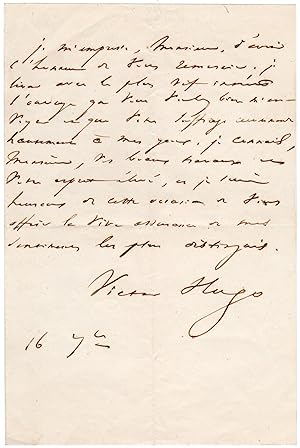 je m'empresse, Monsieur, d'avoir
l'honneur de vous remercier. je
lirai avec le plus vif intérêt
l'ouvrage que vous voulez bien m'en-
que votre suffrage
hautement à mes yeux. je connais,
Monsieur, vos beaux travaux et
votre esprit élevé, et je suis
heureux de cette occasion de vous
offrir la vive assurance de mes
sentiments les plus distingués.
Victor Hugo
16 7bre